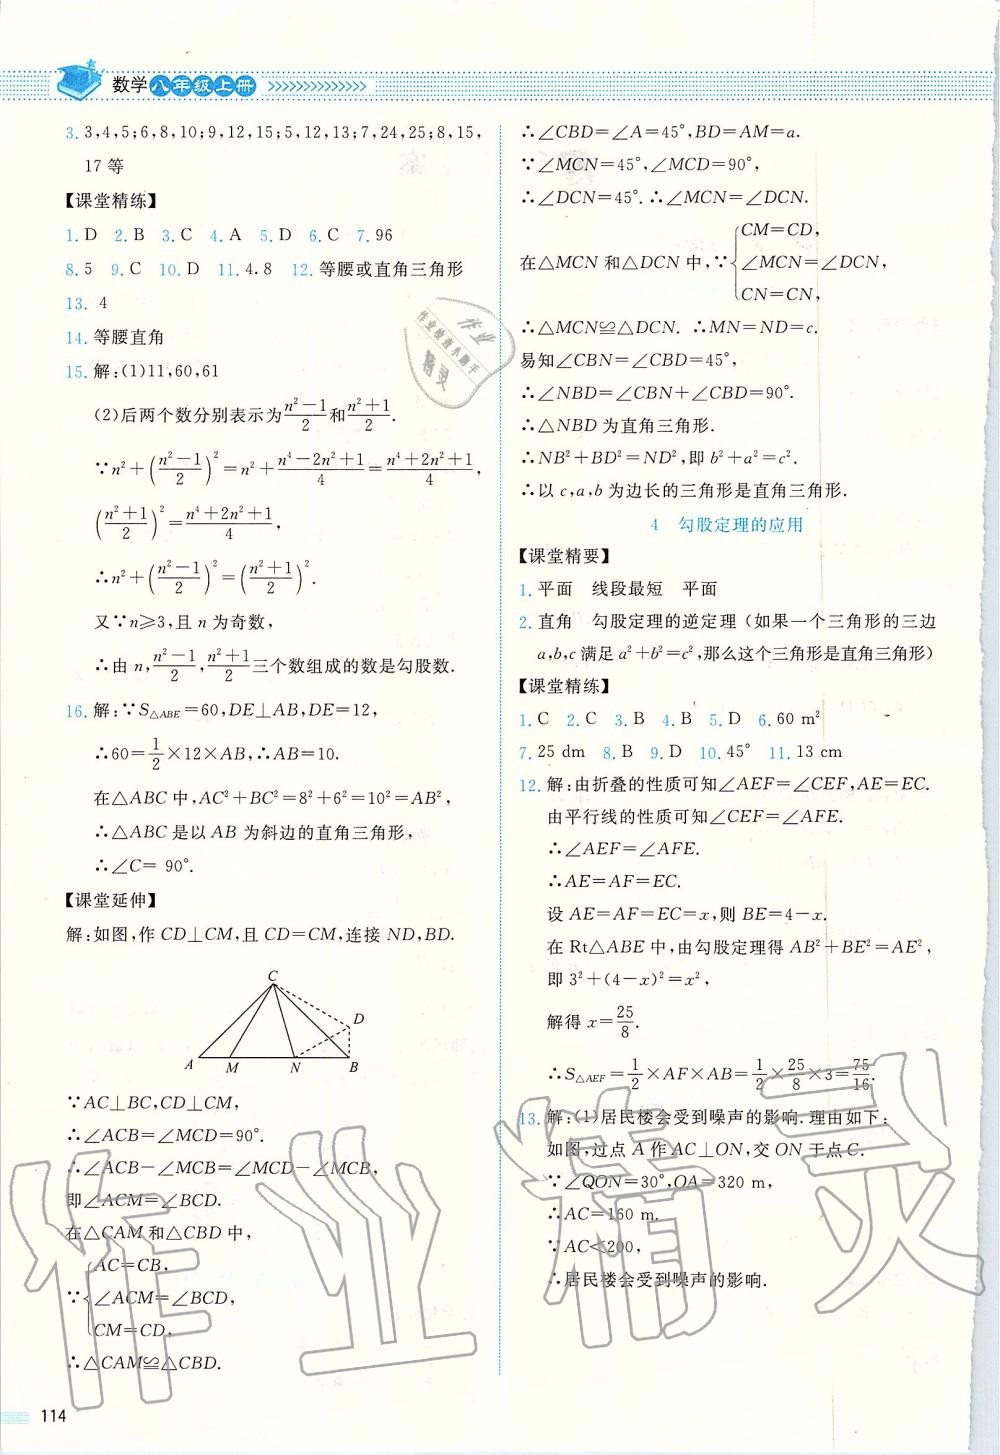 数学八年级上册
3. 3,4,5;6,8,10;9,12,15;5,12,13;7,24,25;8,15,
17 等
【课堂精练】
1. D 2. B 3. C 4. A 5. D 6. C 7. 96
8. 5 9. C 10. D 11. 4.8 12. 等腰或直角三角形
13. 4
14. 等腰直角
15. 解:(1)11,60,61
(2)后两个数分别表示为(n²−1)/2和(n²+1)/2.
∵n²+((n²−1)/2)²=n²+(n⁴−2n²+1)/4=(n⁴+2n²+1)/4,
((n²+1)/2)²=(n⁴+2n²+1)/4,
∴n²+((n²−1)/2)²=((n²+1)/2)².
又∵n≥3,且 n 为奇数,
∴由 n,(n²−1)/2,(n²+1)/2三个数组成的数是勾股数.
16. 解:∵S△ABE=60,DE⊥AB,DE=12,
∴60=1/2×12×AB,∴AB=10.
在△ABC 中,AC²+BC²=8²+6²=10²=AB²,
∴△ABC 是以 AB 为斜边的直角三角形,
∴∠C= 90°.
【课堂延伸】
解:如图,作 CD⊥CM,且 CD=CM,连接 ND,BD.
C
D
A M N B
∵AC⊥BC,CD⊥CM,
∴∠ACB=∠MCD=90°.
∴∠ACB−∠MCB=∠MCD−∠MCB,
即∠ACM=∠BCD.
在△CAM 和△CBD 中,
AC=CB,
∵{∠ACM=∠BCD,
CM=CD,
∴△CAM≌△CBD.
114
∴∠CBD=∠A=45°,BD=AM=a.
∵∠MCN=45°,∠MCD=90°,
∴∠DCN=45°.∴∠MCN=∠DCN.
CM=CD,
在△MCN 和△DCN 中,∵{∠MCN=∠DCN,
CN=CN,
∴△MCN≌△DCN. ∴MN=ND=c.
易知∠CBN=∠CBD=45°,
∴∠NBD=∠CBN+∠CBD=90°.
∴△NBD 为直角三角形.
∴NB²+BD²=ND²,即 b²+a²=c².
∴以 c,a,b 为边长的三角形是直角三角形.
4 勾股定理的应用
【课堂精要】
1. 平面 线段最短 平面
2. 直角 勾股定理的逆定理(如果一个三角形的三边
a,b,c 满足 a²+b²=c²,那么这个三角形是直角三角形)
【课堂精练】
1. C 2. C 3. B 4. B 5. D 6. 60 m²
7. 25 dm 8. B 9. D 10. 45° 11. 13 cm
12. 解:由折叠的性质可知∠AEF=∠CEF,AE=EC.
由平行线的性质可知∠CEF=∠AFE.
∴∠AEF=∠AFE.
∴AE=AF=EC.
设 AE=AF=EC=x,则 BE=4−x.
在 Rt△ABE 中,由勾股定理得 AB²+BE²=AE²,
即 3²+(4−x)²=x²,
解得 x=25/8.
∴S△AEF=1/2×AF×AB=1/2×25/8×3=75/16.
13. 解:(1)居民楼会受到噪声的影响.理由如下:
如图,过点 A 作 AC⊥ON,交 ON 于点 C.
∵∠QON=30°,OA=320 m,
∴AC=160 m.
∵AC<200,
∴居民楼会受到噪声的影响.
作业
作业检查小助手
精灵
作业精灵